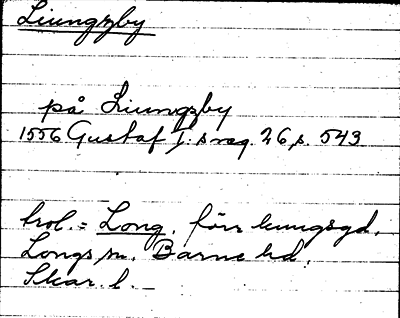 Liungzby
på Liungzby
1556 Gustaf I:s reg. 26 s. 543
trol. = Long, förr kungsgd,
Longs sn. Barne hd,
Skar. l.